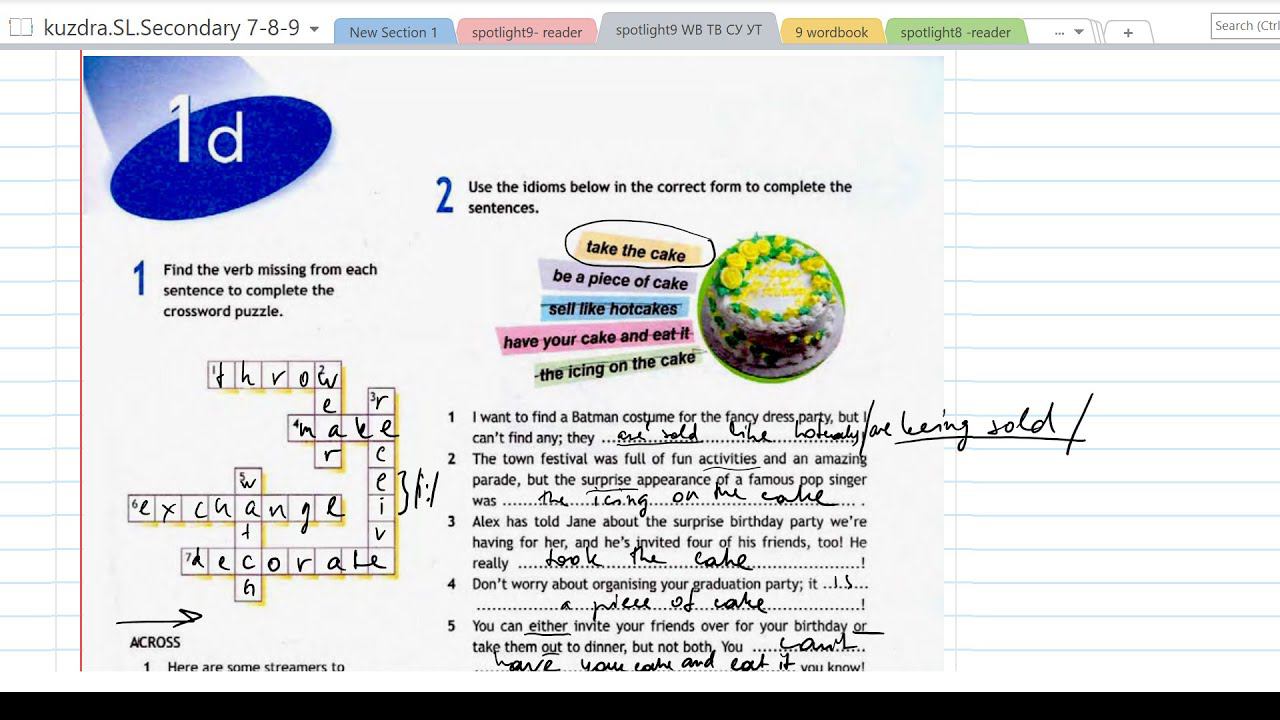 kuzdra.SL.Secondary 7-8-9
New Section 1
spotlight9- reader
spotlight9 WB TB СУ УТ
9 wordbook
spotlight8 -reader
...
+
Search (Ctrl
1d
1 Find the verb missing from each
sentence to complete the
crossword puzzle.
1 throw
2 wear
3 receive
4 make
5 watch
6 exchange
7 decorate
/i:/
ACROSS
1 Here are some streamers to
2 Use the idioms below in the correct form to complete the
sentences.
take the cake
be a piece of cake
sell like hotcakes
have your cake and eat it
the icing on the cake
1 I want to find a Batman costume for the fancy dress party, but I
can't find any; they ... are sold like hotcakes /are being sold /
2 The town festival was full of fun activities and an amazing
parade, but the surprise appearance of a famous pop singer
was the icing on the cake .
3 Alex has told Jane about the surprise birthday party we're
having for her, and he's invited four of his friends, too! He
really took the cake !
4 Don't worry about organising your graduation party; it is
a piece of cake !
5 You can either invite your friends over for your birthday or
take them out to dinner, but not both. You can't
have your cake and eat it you know!